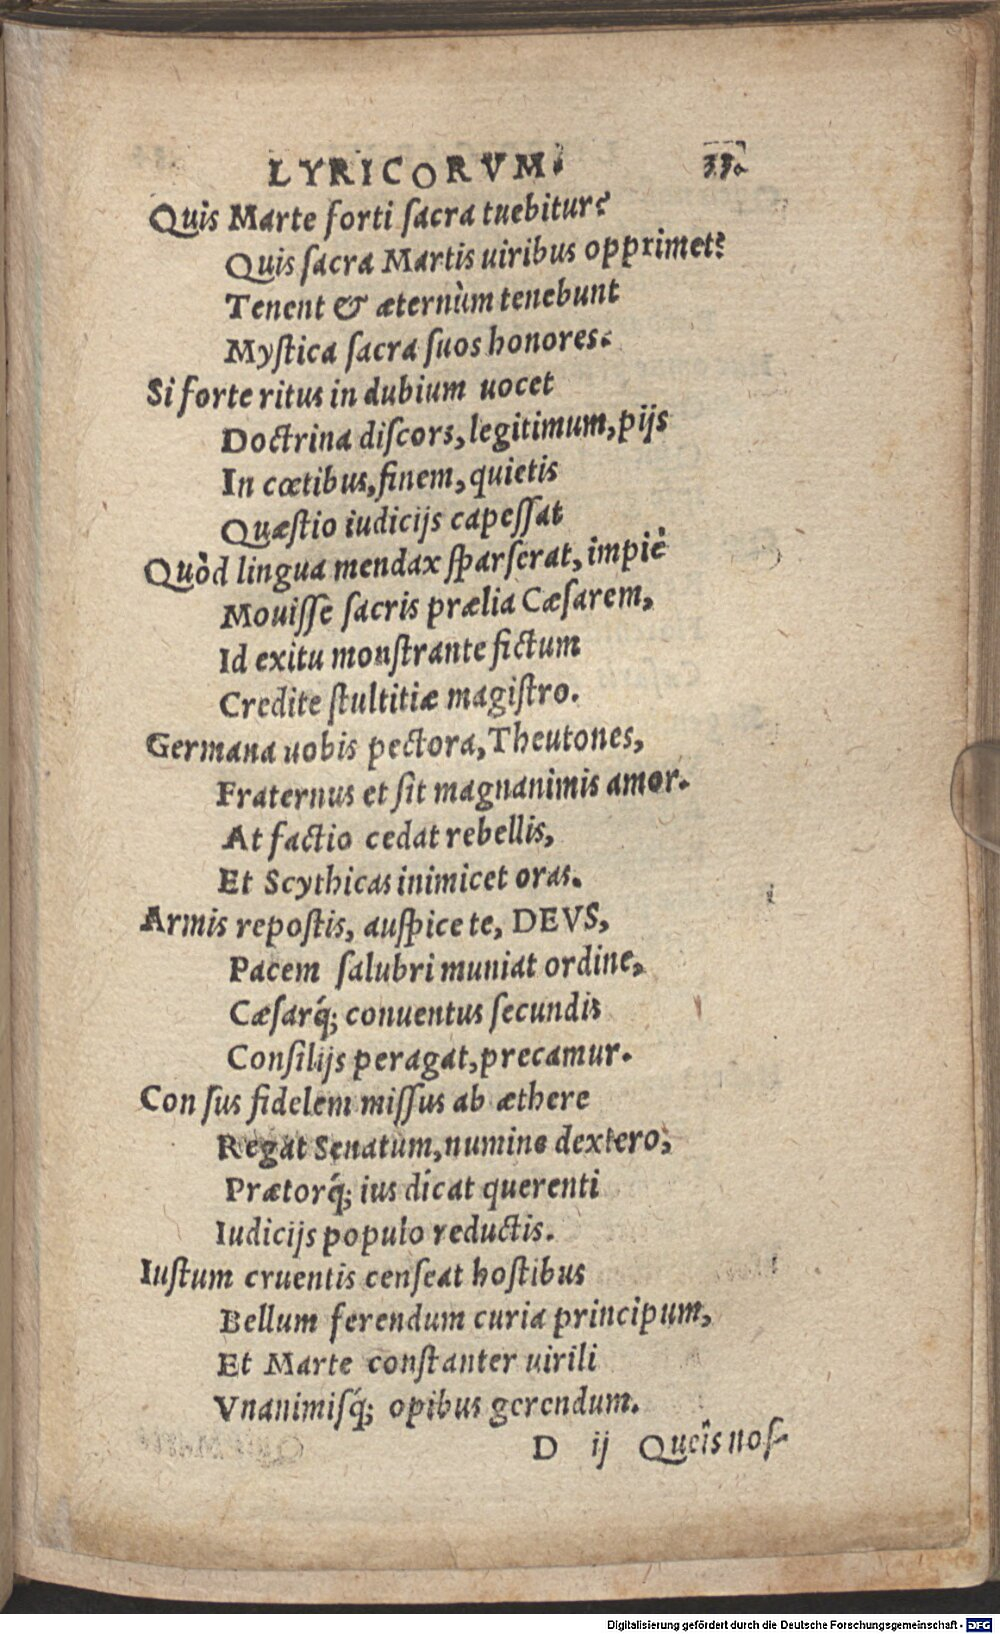 LYRICORVM.
Quis Marte forti ſacra tuebitur?
Quis ſacra Martis uiribus opprimet?
Tenent & æternùm tenebunt
Myſtica ſacra ſuos honores.
Si forte ritus in dubium uocet
Doctrina diſcors, legitimum, pijs
In cœtibus, finem, quietis
Quæſtio iudicijs capeſſat
Quòd lingua mendax ſparſerat, impiè
Mouiſſe ſacris prælia Cæſarem,
Id exitu monſtrante fictum
Credite ſtultitiæ magiſtro.
Germana uobis pectora, Theutones,
Fraternus et ſit magnanimis amor.
At factio cedat rebellis,
Et Scythicas inimicet oras.
Armis repoſtis, auſpice te, DEVS,
Pacem ſalubri muniat ordine,
Cæſarq́; conuentus ſecundis
Conſilijs peragat, precamur.
Con ſus fidelem miſſus ab æthere
Regat Senatum, numine dextero,
Prætorq́; ius dicat querenti
Iudicijs populo reductis.
Iuſtum cruentis cenſeat hoſtibus
Bellum ferendum curia principum,
Et Marte conſtanter uirili
Vnanimiſq́; opibus gerendum.
D ij Queîs noſ-
Digitalisierung gefördert durch die Deutsche Forschungsgemeinschaft - DFG